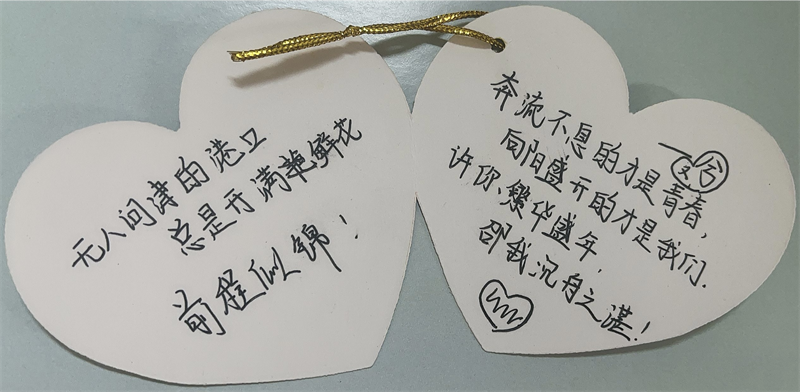 无人问津的港口
总是开满艳鲜花
前程似锦！
奔流不息的才是青春，
向阳盛开的才是我们.
许你繁华盛年，
邵我沉舟之湛！